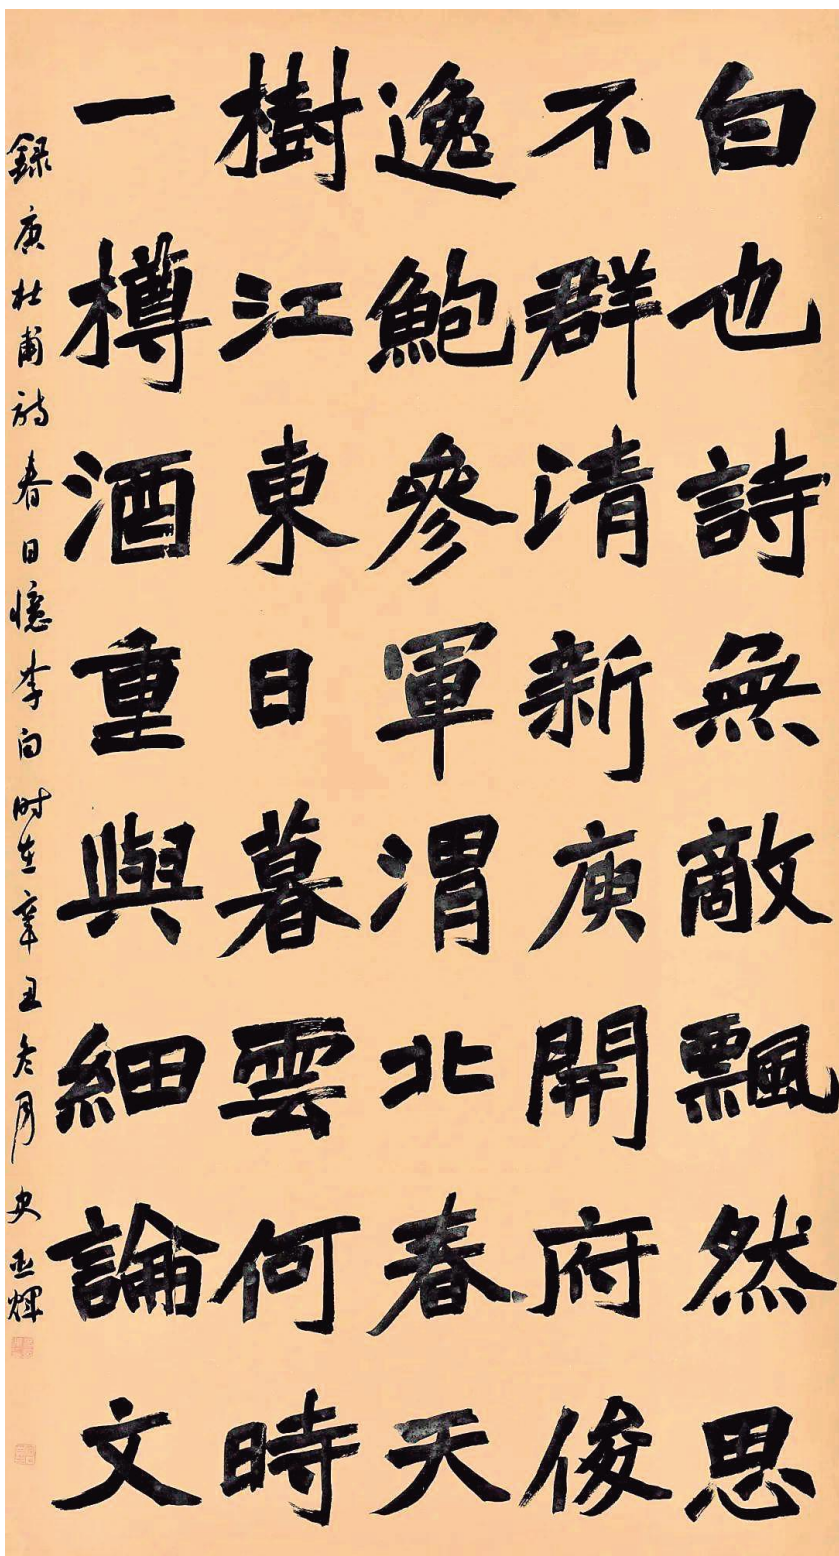 白也詩無敵飄然思
不群清新庾開府俊
逸鮑參軍渭北春天
樹江東日暮雲何時
一樽酒重與細論文
錄唐杜甫詩春日憶李白时在辛丑冬月 史亚輝